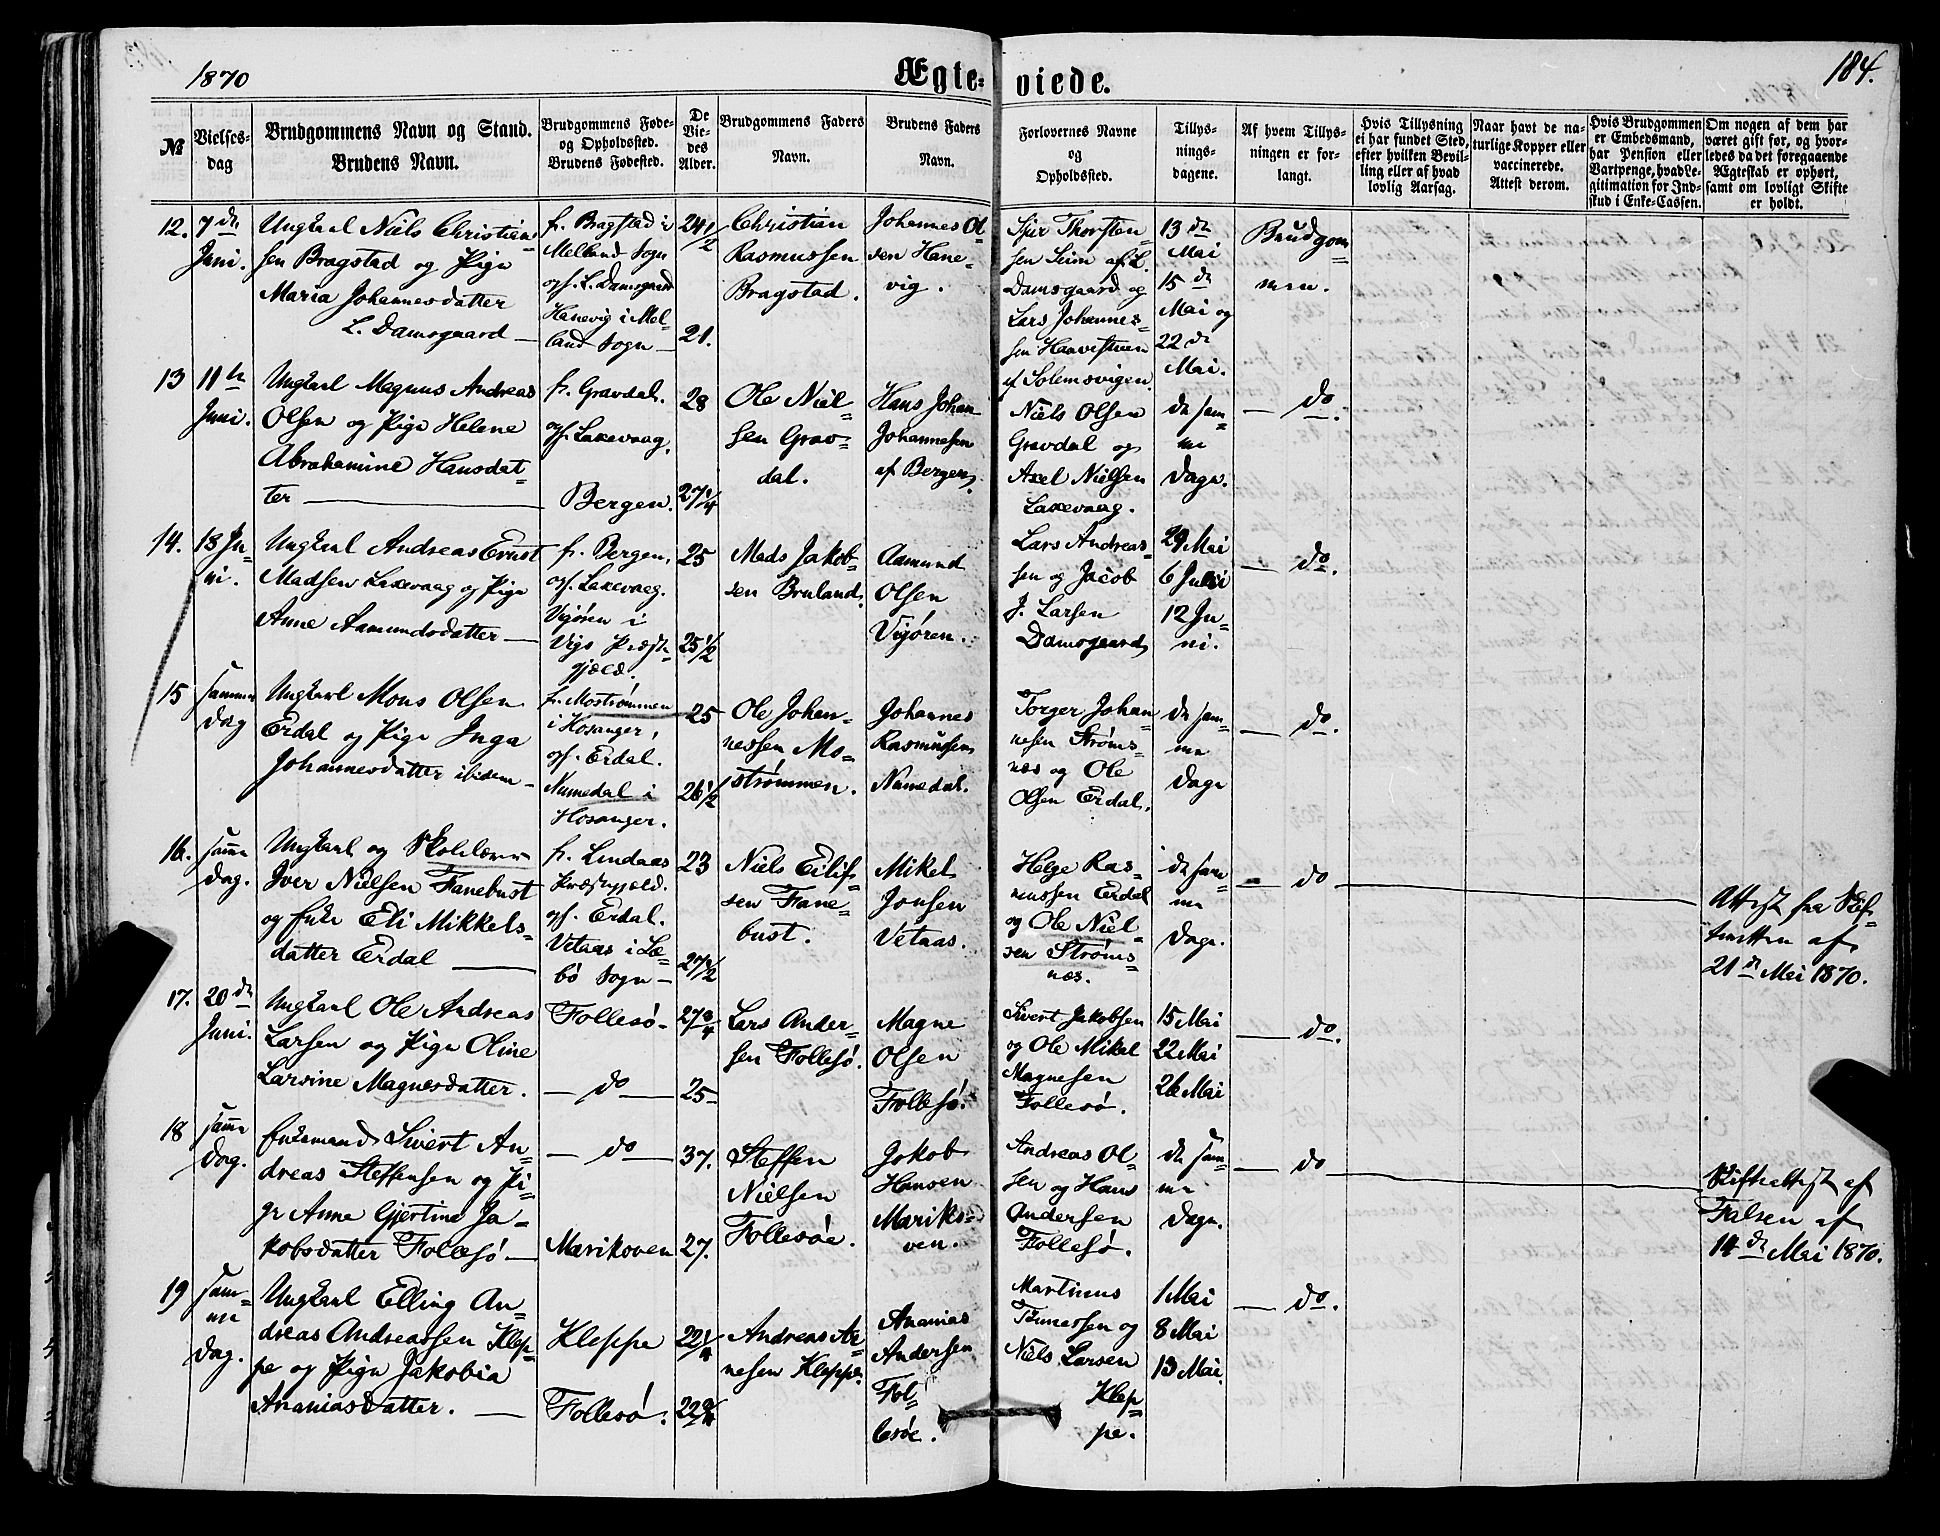 1870
Ægteviede.
184.
№
Vielses-
dag
Brudgommens Navn og Stand.
Brudens Navn.
Brudgommens Føde-
og Opholdssted.
Brudens Fødested.
De
Vie-
des
Alder.
Brudgommens Faders
Navn.
Brudens Faders
Navn.
Forlovernes Navne
og
Opholdssted.
Tillys-
nings-
dagene.
Af hvem Tillys-
ningen er for-
langt.
Hvis Tillysning
ei har fundet Sted,
efter hvilken Bevil-
ling eller af hvad
lovlig Aarsag.
Naar havt de na-
turlige Kopper eller
vaccinerede.
Attest derom.
Hvis Brudgommen
er Embedsmand,
har Pension eller
Vartpenge, hvad Le-
gitimation for Ind-
skud i Enke-Cassen.
Om nogen af dem har
været gift før, og hvor-
ledes da det foregaaende
Ægteskab er ophørt,
samt om lovligt Skifte
er holdt.
12.
7 de
Juni.
Ungkarl Niels Christian-
sen Bragstad og Pige
Maria Johannesdatter
L. Damsgaard
f. Bragstad i
Melland Sogn
opf. L. Damsgaard
Hanevig i Mel-
land Sogn
24 1/2
21.
Christian
Rasmussen
Bragstad.
Johannes Ol-
sen Hane-
vig.
Sjur Thorsten-
sen Seim af L.
Damsgaard og
Lars Johannes-
sen Haavestuen
af Solemsvigen.
13 de
Mai
15 de
Mai og
22 de
Mai.
Brudgom-
men.
13
11 te
Juni.
Ungkarl Magnus Andreas
Olsen og Pige Helene
Abrahamine Hansdat-
ter
f. Gravdal.
opf. Laxevaag.
Bergen.
28
27 1/4
Ole Niel-
sen Grav-
dal.
Hans Johan
Johannesen
af Bergen.
Niels Olsen
Gravdal og
Axel Nielsen
Laxevaag.
de sam-
me
Dage.
do.
14.
13 Ju-
ni.
Ungkarl Andreas Ernst
Madsen Laxevaag og Pige
Anne Aamundsdatter
f. Bergen,
opf. Laxevaag.
Vigøren i
Vigs Præste-
gjæld.
25
25 1/2
Mads Jakob-
sen Bruland.
Aamund
Olsen
Vigøren.
Lars Andreas-
sen og Jacob
J. Larsen
Damsgaard
29 Mai
6 Juni
12 Ju-
ni.
do.
15
samme
Dag
Ungkarl Mons Olsen
Erdal og Pige Inga
Johannesdatter ibidem
f. Mostrømmen
i Hosanger,
opf. Erdal.
Numedal i
Hosanger.
25
26 1/2
Ole Johan-
nessen Mo-
strømmen.
Johannes
Rasmussen
Numedal.
Torger Johan-
nesen Strøms-
næs og Ole
Olsen Erdal.
de sam-
me
Dage
do.
16.
samme
Dag.
Ungkarl og Skolelærer
Iver Nielsen Fanebust
og Enke Eli Mikkels-
datter Erdal
f. Lindaas
Præstegjæld.
opf. Erdal.
Vetaas i Le-
bø Sogn
23
27 1/2
Niels Eilif-
sen Fane-
bust.
Mikel
Jonsen
Vetaas.
Helge Ras-
mussen Erdal
og Ole Niel-
sen Strøms-
næs.
de sam-
me
Dage.
do
Attest fra Skif-
teretten af
21 de Mai 1870.
17.
20 de
Juni.
Ungkarl Ole Andreas
Larsen og Pige Oline
Larsine Magnesdatter.
Follesø
do
27 3/4
25
Lars Ander-
sen Follesø.
Magne
Olsen
Follesø.
Sivert Jakobsen
og Ole Mikal
Magnesen
Follesø.
15 Mai
22 Mai
26 Mai
do.
18
samme
Dag.
Enkemand Sivert An-
dreas Steffensen og Pi-
ge Anne Gjertine Ja-
kobsdatter Follesø
do
Marikoven
37.
27.
Steffen
Nielsen
Follesøe.
Jakob
Hansen
Mariko-
ven.
Andreas Ol-
sen og Hans
Andersen
Follesø.
de sam-
me
Dage.
do
Skifteattest af
Falsen af
14 de Mai 1870.
19
sam-
me
Dag.
Ungkarl Elling An-
dreas Andreassen Klep-
pe og Pige Jakobia
Ananiasdatter.
Kleppe
Follesø.
22 1/4
22 3/4
Andreas Ar-
nesen Kleppe.
Ananias
Andersen
Fol-
lesøe.
Martinus
Tønnessen og
Niels Larsen
Klep-
pe.
1 Mai
8 Mai
13 Mai
do.